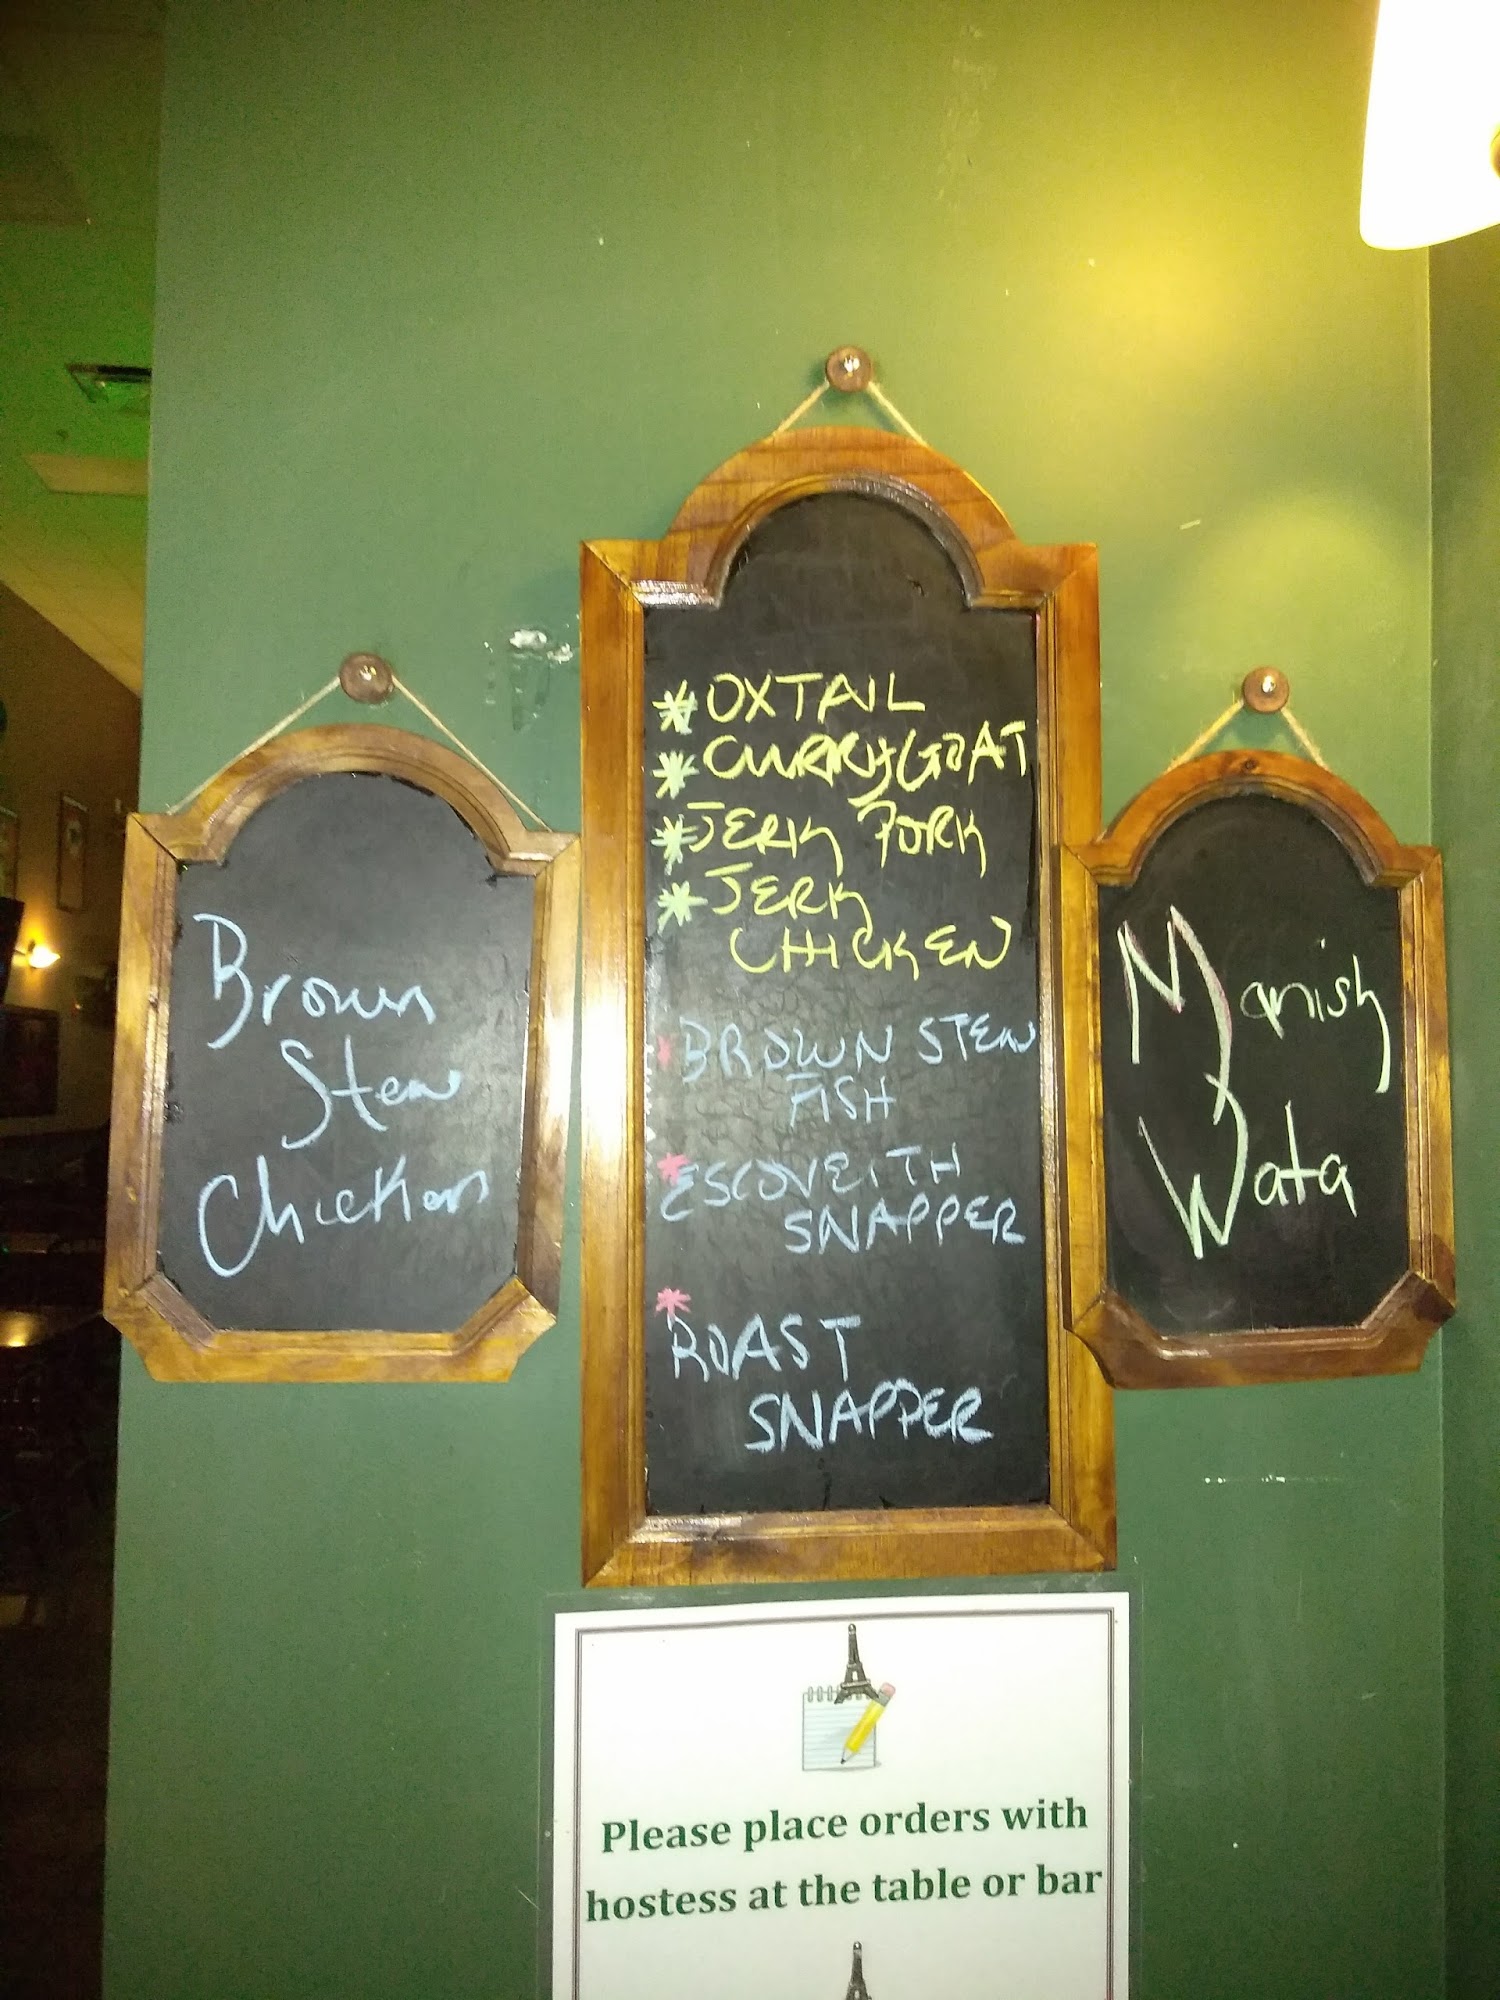 Brown
Stew
Chicken
* OXTAIL
* CURRY GOAT
* JERK PORK
* JERK
CHICKEN
* BROWN STEW
FISH
* ESCOVEITH
SNAPPER
* ROAST
SNAPPER
Manish
Wata
Please place orders with
hostess at the table or bar